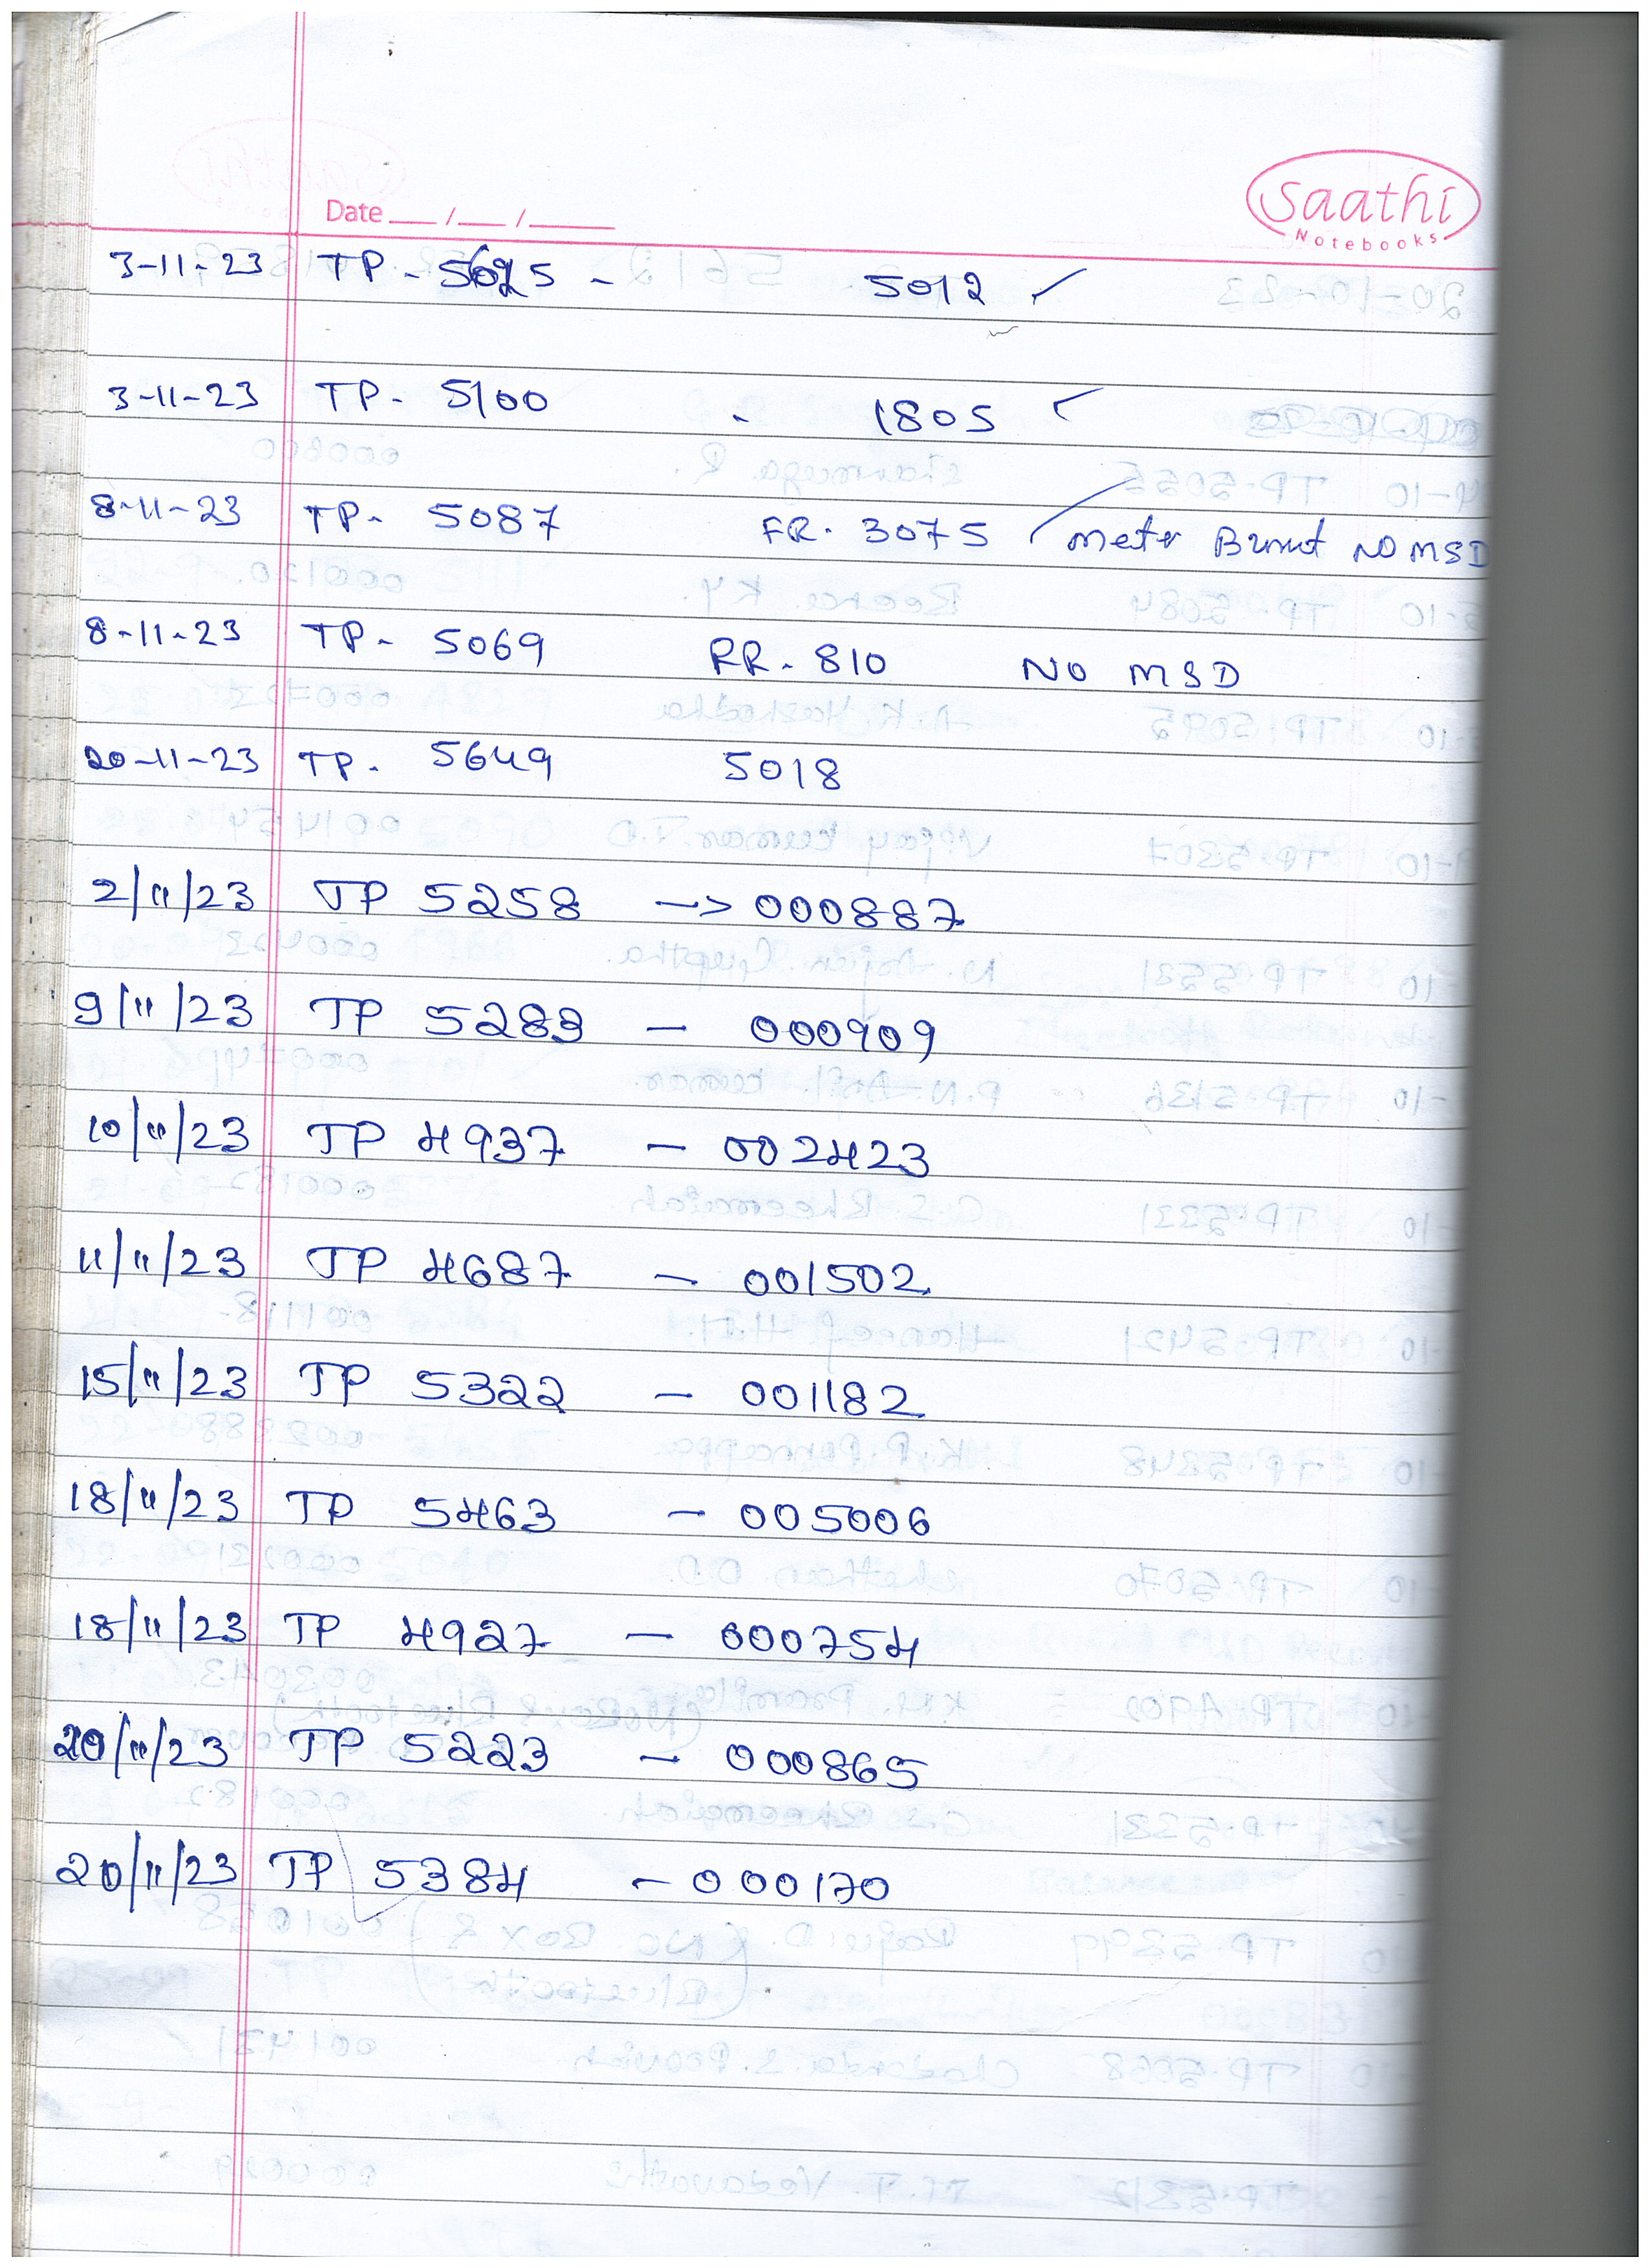 Saathi
Notebooks
Date ___/___/_____
3-11-23 TP - 5625 - 5012 ✓
3-11-23 TP - 5100 - 1805 ✓
8-11-23 TP - 5087 FR. 3075 ✓ meter Burnt NO MSD
8-11-23 TP - 5069 RR - 810 NO MSD
20-11-23 TP - 5649 5018
2/11/23 TP 5258 -> 000887
9/11/23 TP 5283 - 000909
10/11/23 TP 4937 - 002423
11/11/23 TP 4687 - 001502
15/11/23 TP 5322 - 001182
18/11/23 TP 5463 - 005006
18/11/23 TP 4927 - 000754
20/11/23 TP 5223 - 000865
20/11/23 TP 5384 - 000170